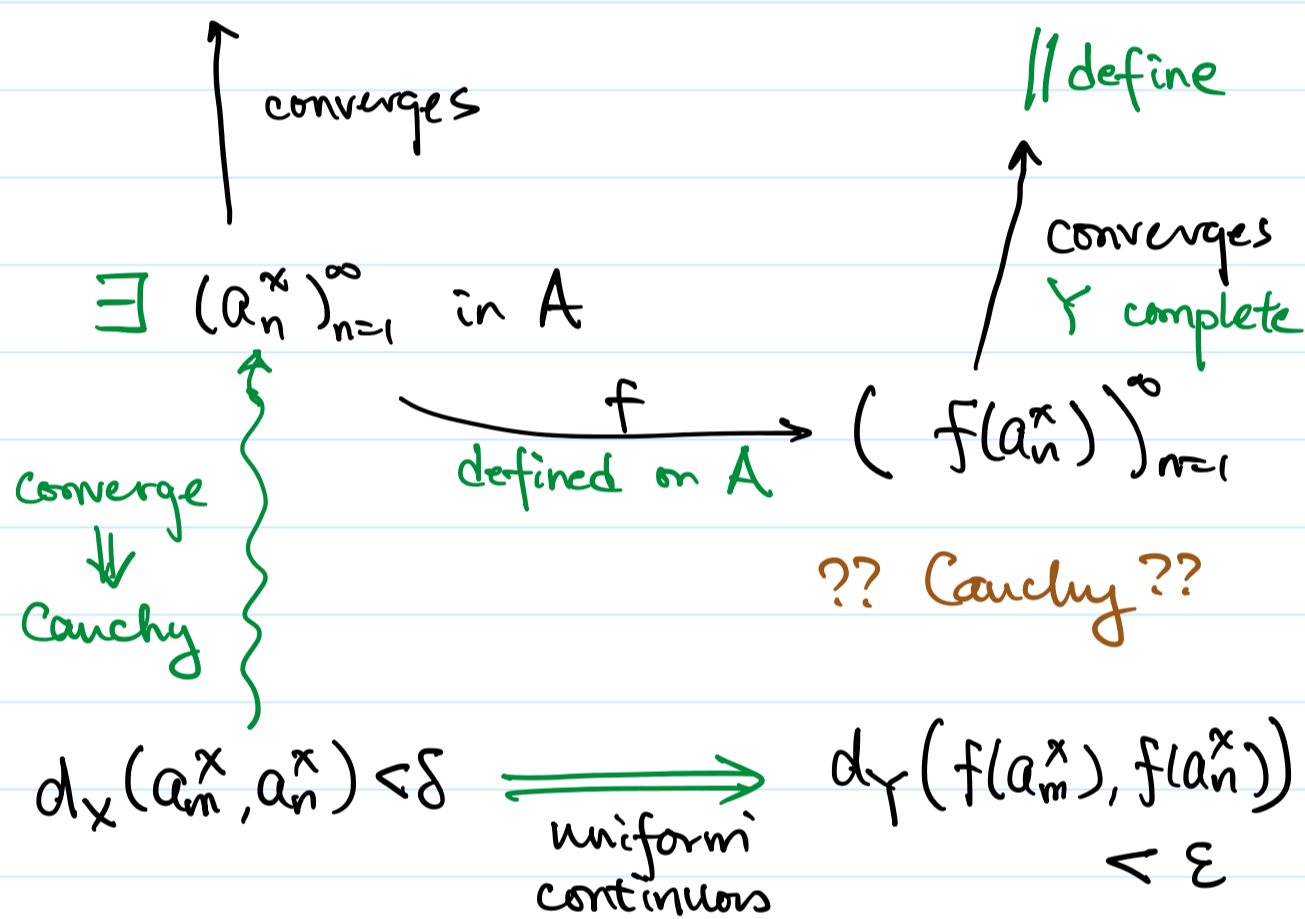 converges
// define
∃ (aₙˣ)ₙ₌₁^∞ in A
converges
Y complete
f
defined on A
( f(aₙˣ) )ₙ₌₁^∞
converge
⇓
Cauchy
?? Cauchy ??
d_X(aₘˣ, aₙˣ) < δ
⟹
uniform
continuous
d_Y(f(aₘˣ), f(aₙˣ))
< ε